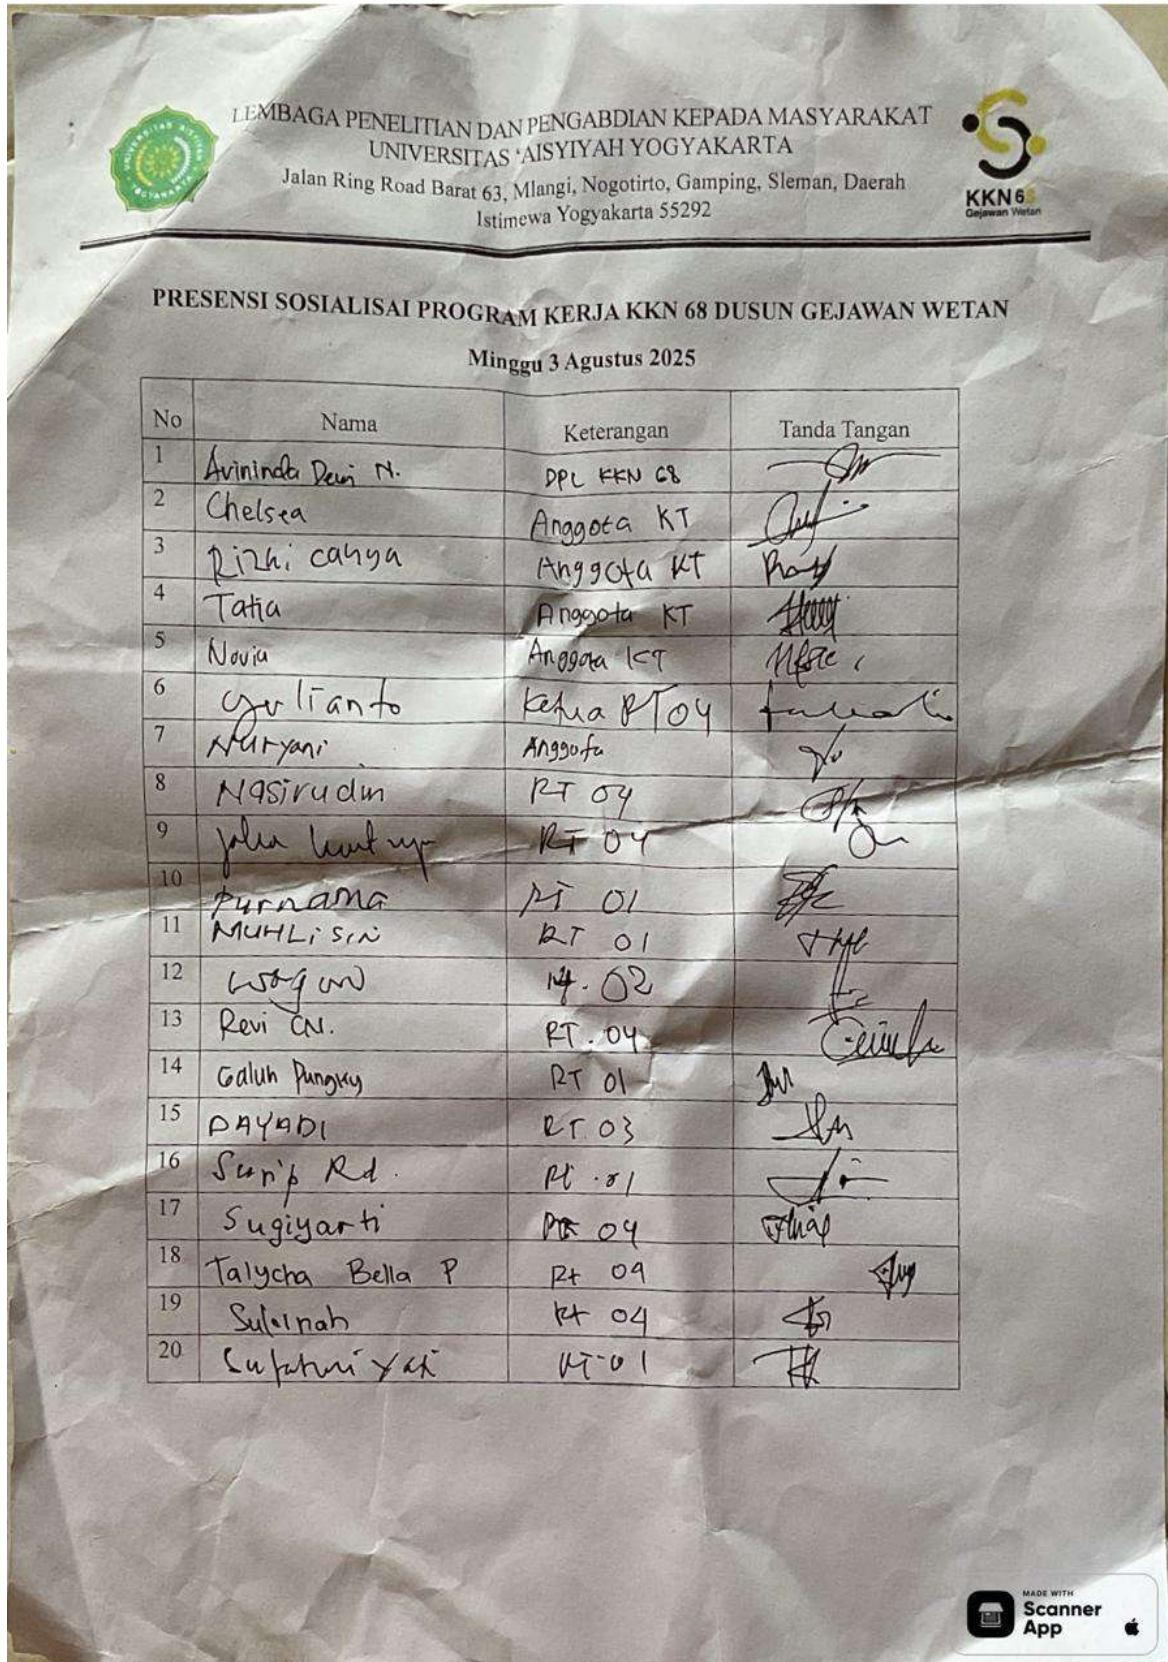 LEMBAGA PENELITIAN DAN PENGABDIAN KEPADA MASYARAKAT
UNIVERSITAS 'AISYIYAH YOGYAKARTA
Jalan Ring Road Barat 63, Mlangi, Nogotirto, Gamping, Sleman, Daerah
Istimewa Yogyakarta 55292
UNIVERSITAS 'AISYIYAH YOGYAKARTA
KKN 68
Gejawan Wetan
PRESENSI SOSIALISAI PROGRAM KERJA KKN 68 DUSUN GEJAWAN WETAN
Minggu 3 Agustus 2025
No Nama Keterangan Tanda Tangan
1 Avininda Dewi N. DPL KKN 68
2 Chelsea Anggota KT
3 Rizki cahya Anggota KT
4 Tatia Anggota KT
5 Novia Anggota KT
6 Yulianto Ketua RT 04
7 Nuryani Anggota
8 Nasirudin RT 04
9 RT 04
10 Purnama RT 01
11 MUHLISIN RT 01
12 02
13 Revi CN. RT. 04
14 Galuh Pungky RT 01
15 DAYADI RT. 03
16 Surip Rd. Rt. 01
17 Sugiyarti 04
18 Talycha Bella P Rt 04
19 Rt 04
20 RT-01
MADE WITH
Scanner
App